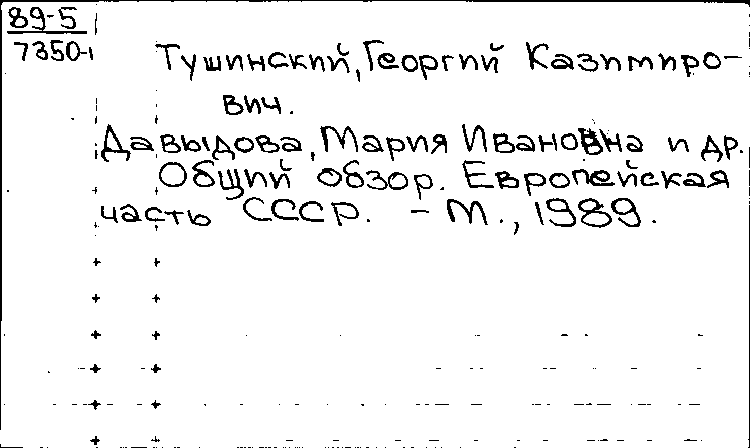 89-5
7350-1
Тушинский, Георгий Казимиро-
вич.
Давыдова, Мария Ивановна и др.
Общий обзор. Европейская
часть СССР. - М., 1989.